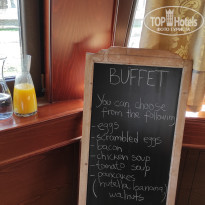 TOP HOTELS
BUFFET
You can choose
from the following
- eggs
- scrambled eggs
- bacon
- chicken soup
- tomato soup
- pancakes
(nutella, banana,
walnuts